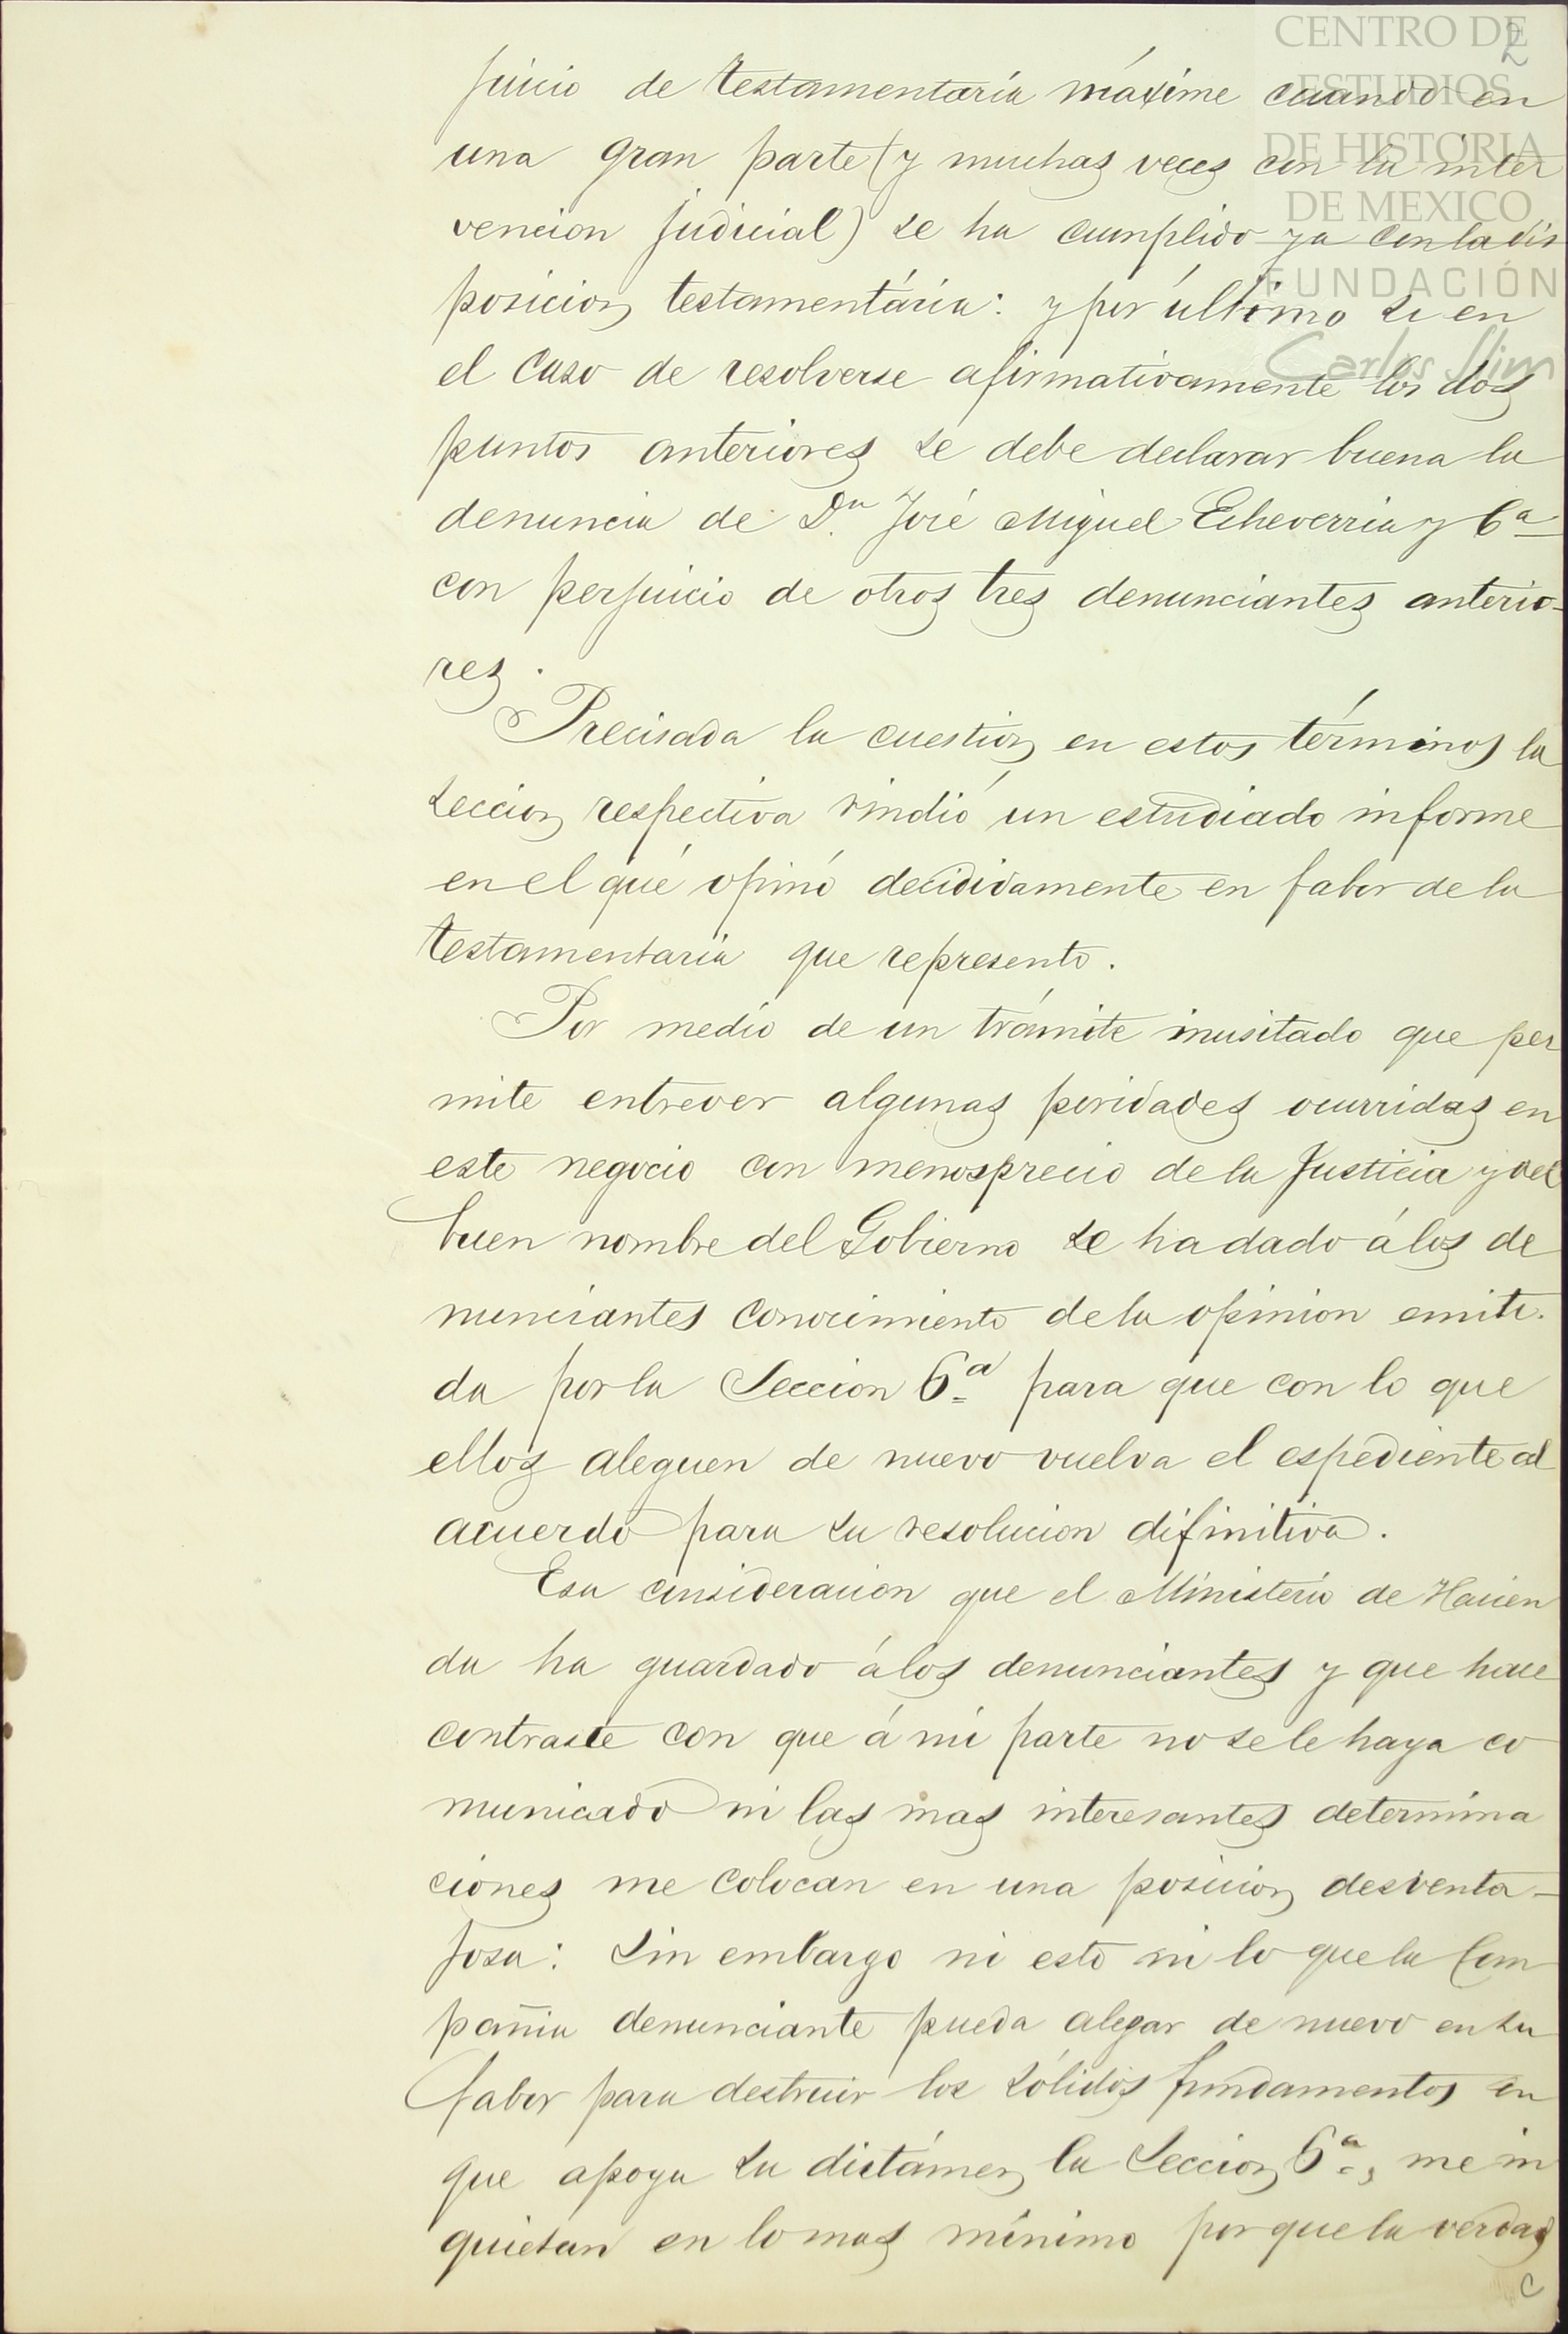 CENTRO DE
ESTUDIOS
DE HISTORIA
DE MEXICO
FUNDACIÓN
Carlos Slim
2
juicio de testamentaría máxime cuando en
una gran parte (y muchas veces con la inter
vencion judicial) se ha cumplido ya con la dis
posicion testamentária: y por último si en
el caso de resolverse afirmativamente los dos
puntos anteriores se debe declarar buena la
denuncia de Dn. José Miguel Echeverria y Ca
con perjuicio de otros tres denunciantes anterio-
res.
Precisada la cuestion en estos términos la
Seccion respectiva rindió un estudiado informe
en el qué opinó decididamente en fabor de la
testamentaría que represento.
Por medio de un trámite inusitado que per
mite entrever algunas poridades ocurridas en
este negocio con menosprecio de la Justicia y del
buen nombre del Gobierno se ha dado á los de
nunciantes conocimiento de la opinion emiti-
da por la Seccion 6.a para que con lo que
ellos aleguen de nuevo vuelva el espediente al
acuerdo para su resolucion difinitiva.
Esa consideracion que el Ministerio de Hacien
da ha guardado á los denunciantes y que hace
contraste con que á mi parte no se le haya co
municado ni las mas interesantes determina
ciones me colocan en una posicion desventa-
josa: Sin embargo ni esto ni lo que la Com
pañia denunciante pueda alegar de nuevo en su
fabor para destruir los sólidos fundamentos en
que apoya su dictámen la Seccion 6.a, me in
quietan en lo mas mínimo por que la verdad